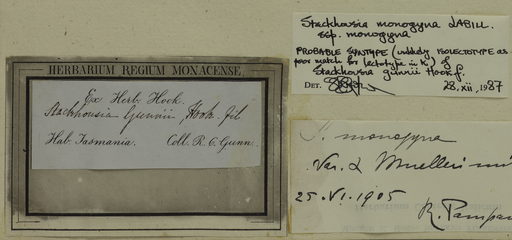 HERBARIUM REGIUM MONACENSE.
Ex Herb. Hook.
Stackhousia Gunnii, Hook. fil
Hab. Tasmania. Coll. R. C. Gunn.
Stackhousia monogyna LABILL.
ssp. monogyna
PROBABLE SYNTYPE (unlikely ISOLECTOTYPE as
poor match for lectotype in K) of
Stackhousia gunnii Hook.f.
DET. 28.xii.1987
S. monogyna
Var. α Muelleri mi
25. VI. 1905
R. Pampan